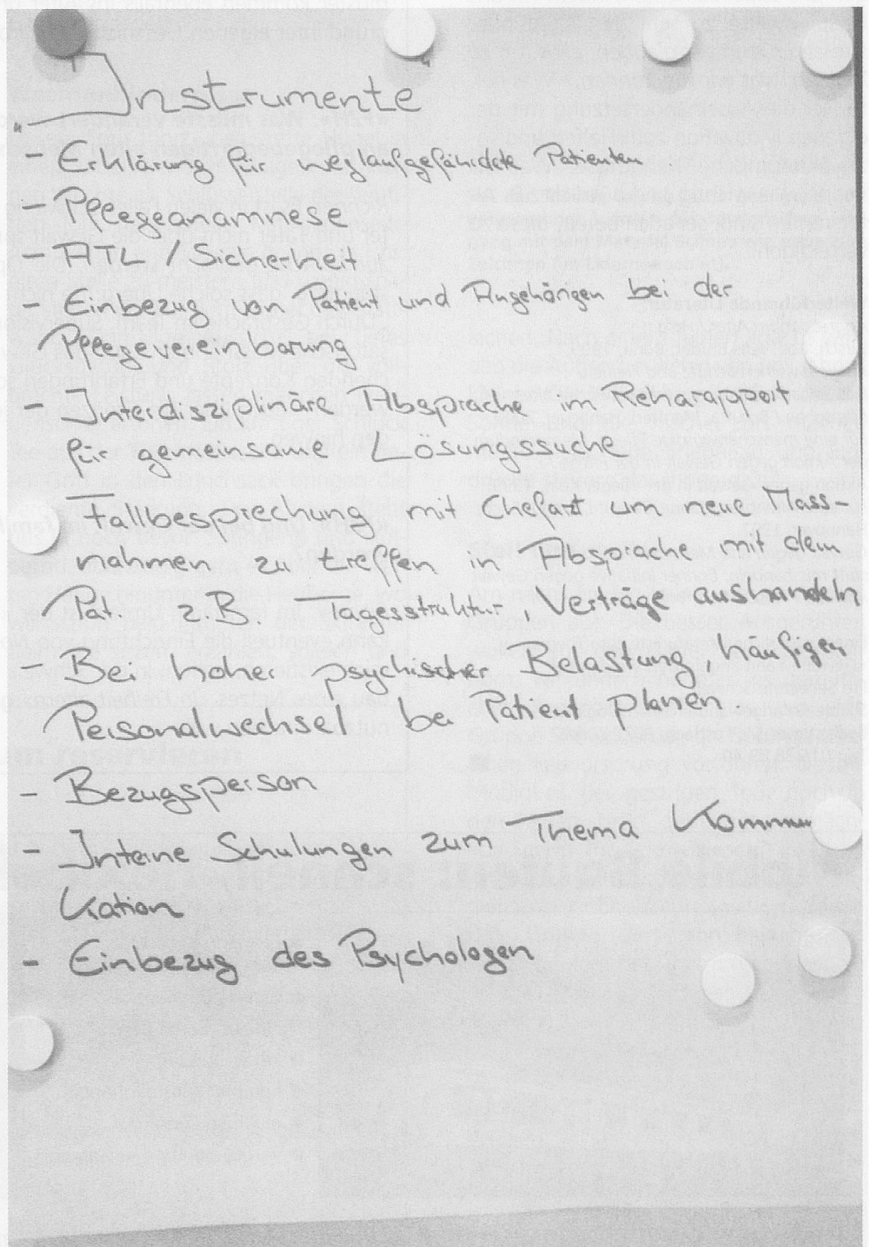 Instrumente
- Erklärung für weglaufgefährdete Patienten
- Pflegeanamnese
- ATL / Sicherheit
- Einbezug von Patient und Angehörigen bei der
Pflegevereinbarung
- Interdisziplinäre Absprache im Reharapport
für gemeinsame Lösungssuche
- Fallbesprechung mit Chefarzt um neue Mass-
nahmen zu treffen in Absprache mit dem
Pat. z.B. Tagesstruktur, Verträge aushandeln
- Bei hoher psychischer Belastung, häufigen
Personalwechsel bei Patient planen
- Bezugsperson
- Interne Schulungen zum Thema Kommuni
kation
- Einbezug des Psychologen